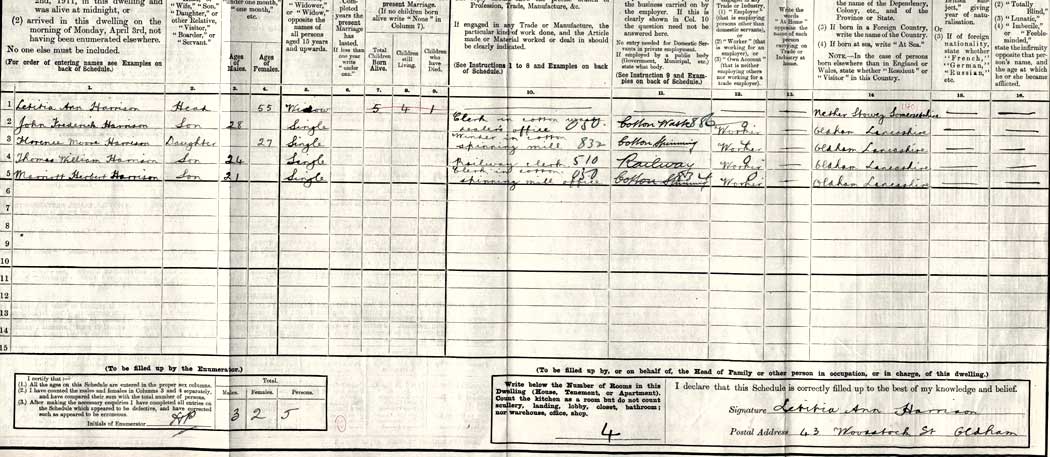 2nd, 1911, in this dwelling and was alive at midnight, or
(2) arrived in this dwelling on the morning of Monday, April 3rd, not having been enumerated elsewhere.
No one else must be included.
(For order of entering names see Examples on back of Schedule.)
"Wife," "Son,"
"Daughter,"
or other Relative,
"Visitor,"
"Boarder," or
"Servant."
under one month," etc.
Ages of Males.
Ages of Females.
"Widower,"
or "Widow,"
opposite the names of all persons aged 15 years and upwards.
Completed years the present Marriage has lasted.
If less than one year write "under one."
present Marriage.
(If no children born alive write "None" in Column 7).
Total Children Born Alive.
Children still Living.
Children who have Died.
Profession, Trade, Manufacture, &c.
If engaged in any Trade or Manufacture, the particular kind of work done, and the Article made or Material worked or dealt in should be clearly indicated.
(See Instructions 1 to 8 and Examples on back of Schedule.)
the business carried on by the employer. If this is clearly shown in Col. 10 the question need not be answered here.
No entry needed for Domestic Servants in private employment.
If employed by a public body (Government, Municipal, etc.) state what body.
(See Instruction 9 and Examples on back of Schedule.)
Trade or Industry,
(1) "Employer" (that is employing persons other than domestic servants), or
(2) "Worker" (that is working for an employer), or
(3) "Own Account" (that is neither employing others nor working for a trade employer).
Write the words "At Home" opposite the name of each person carrying on Trade or Industry at home.
the name of the Dependency, Colony, etc., and of the Province or State.
(3) If born in a Foreign Country, write the name of the Country.
(4) If born at sea, write "At Sea."
NOTE.—In the case of persons born elsewhere than in England or Wales, state whether "Resident" or "Visitor" in this Country.
giving year of naturalisation.
Or
(3) If of foreign nationality, state whether "French," "German," "Russian," etc.
(2) "Totally Blind,"
(3) "Lunatic,"
(4) "Imbecile," or "Feeble-minded,"
state the infirmity opposite that person's name, and the age at which he or she became afflicted.
1. 2. 3. 4. 5. 6. 7. 8. 9. 10. 11. 12. 13. 14. 15. 16.
1 Letitia Ann Harrison Head 55 Widow 5 4 1 — — — Nether Stowey Somersetshire
2 John Frederick Harrison Son 28 Single Clerk in cotton waste dealer's office Cotton Waste 886 Worker Oldham Lancashire
3 Florence Moore Harrison Daughter 27 Single Winder in cotton spinning mill 832 Cotton Spinning Worker Oldham Lancashire
4 Thomas William Harrison Son 24 Single Railway clerk 510 Railway Worker Oldham Lancashire
5 Marriott Herbert Harrison Son 21 Single Clerk in cotton spinning mill office Cotton Spinning Worker Oldham Lancashire
6
7
8
9
10
11
12
13
14
15
(To be filled up by the Enumerator.)
I certify that:—
(1.) All the ages on this Schedule are entered in the proper sex columns.
(2.) I have counted the males and females in Columns 3 and 4 separately, and have compared their sum with the total number of persons.
(3.) After making the necessary enquiries I have completed all entries on the Schedule which appeared to be defective, and have corrected such as appeared to be erroneous.
Initials of Enumerator
Total.
Males. Females. Persons.
3 2 5
(To be filled up by, or on behalf of, the Head of Family or other person in occupation, or in charge, of this dwelling.)
Write below the Number of Rooms in this Dwelling (House, Tenement, or Apartment).
Count the kitchen as a room but do not count scullery, landing, lobby, closet, bathroom; nor warehouse, office, shop.
4
I declare that this Schedule is correctly filled up to the best of my knowledge and belief.
Signature Letitia Ann Harrison
Postal Address 43 St Oldham